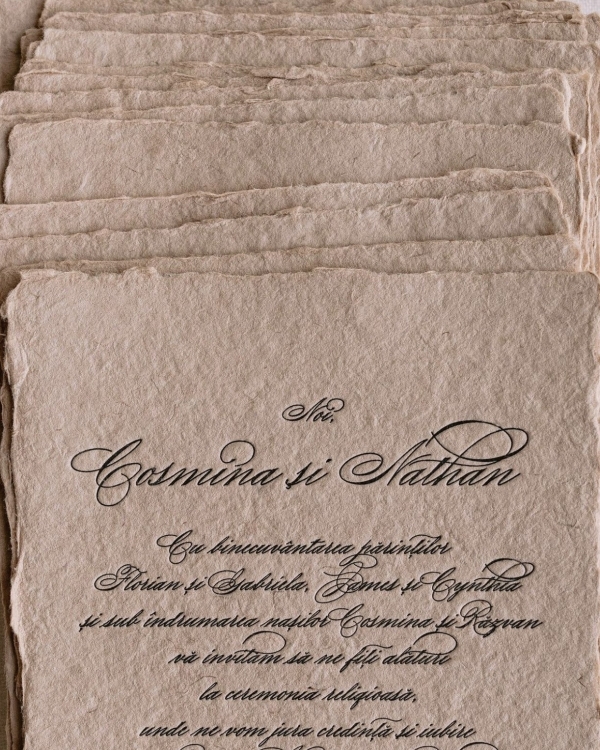 Noi,
Cosmina și Nathan
Cu binecuvântarea părinților
Florian și Gabriela, James și Cynthia
și sub îndrumarea nașilor Cosmina și Răzvan
vă invităm să ne fiți alături
la ceremonia religioasă,
unde ne vom jura credință și iubire